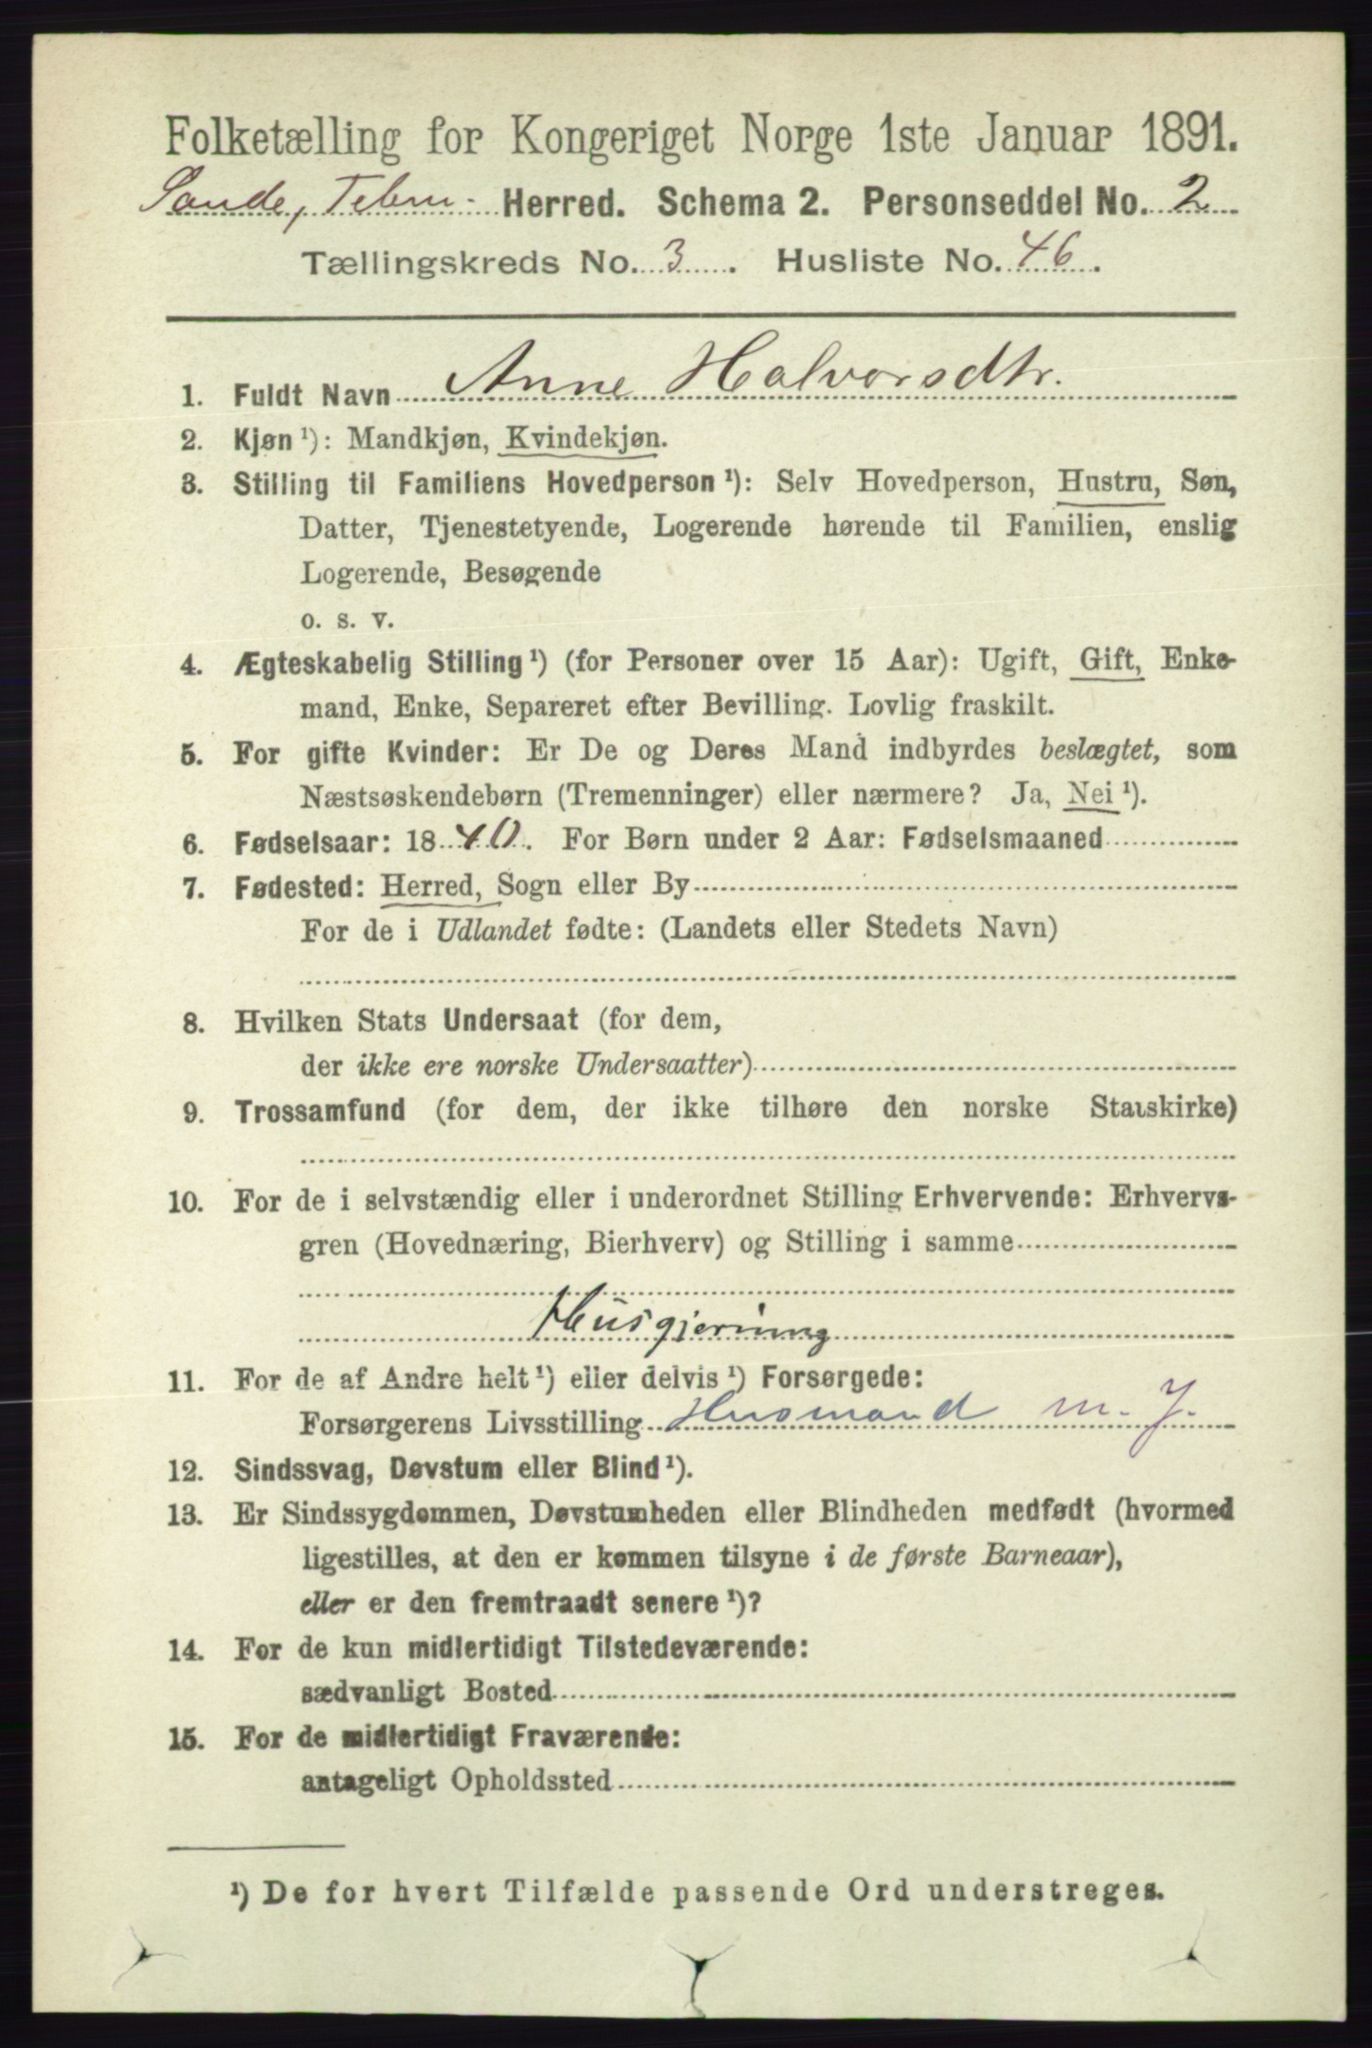 Folketælling for Kongeriget Norge 1ste Januar 1891.
Sande, Telem. Herred. Schema 2. Personseddel No. 2
Tællingskreds No. 3. Husliste No. 46.
1. Fuldt Navn Anne Halvorsdtr.
2. Kjøn ¹): Mandkjøn, Kvindekjøn.
3. Stilling til Familiens Hovedperson ¹): Selv Hovedperson, Hustru, Søn,
Datter, Tjenestetyende, Logerende hørende til Familien, enslig
Logerende, Besøgende
o. s. v.
4. Ægteskabelig Stilling ¹) (for Personer over 15 Aar): Ugift, Gift, Enke-
mand, Enke, Separeret efter Bevilling. Lovlig fraskilt.
5. For gifte Kvinder: Er De og Deres Mand indbyrdes beslægtet, som
Næstsøskendebørn (Tremenninger) eller nærmere? Ja, Nei ¹).
6. Fødselsaar: 1840. For Børn under 2 Aar: Fødselsmaaned
7. Fødested: Herred, Sogn eller By
For de i Udlandet fødte: (Landets eller Stedets Navn)
8. Hvilken Stats Undersaat (for dem,
der ikke ere norske Undersaatter)
9. Trossamfund (for dem, der ikke tilhøre den norske Statskirke)
10. For de i selvstændig eller i underordnet Stilling Erhvervende: Erhvervs-
gren (Hovednæring, Bierhverv) og Stilling i samme
Husgjerning
11. For de af Andre helt ¹) eller delvis ¹) Forsørgede:
Forsørgerens Livsstilling Husmand m. J.
12. Sindssvag, Døvstum eller Blind ¹).
13. Er Sindssygdommen, Døvstumheden eller Blindheden medfødt (hvormed
ligestilles, at den er kommen tilsyne i de første Barneaar),
eller er den fremtraadt senere ¹)?
14. For de kun midlertidigt Tilstedeværende:
sædvanligt Bosted
15. For de midlertidigt Fraværende:
antageligt Opholdssted
¹) De for hvert Tilfælde passende Ord understreges.